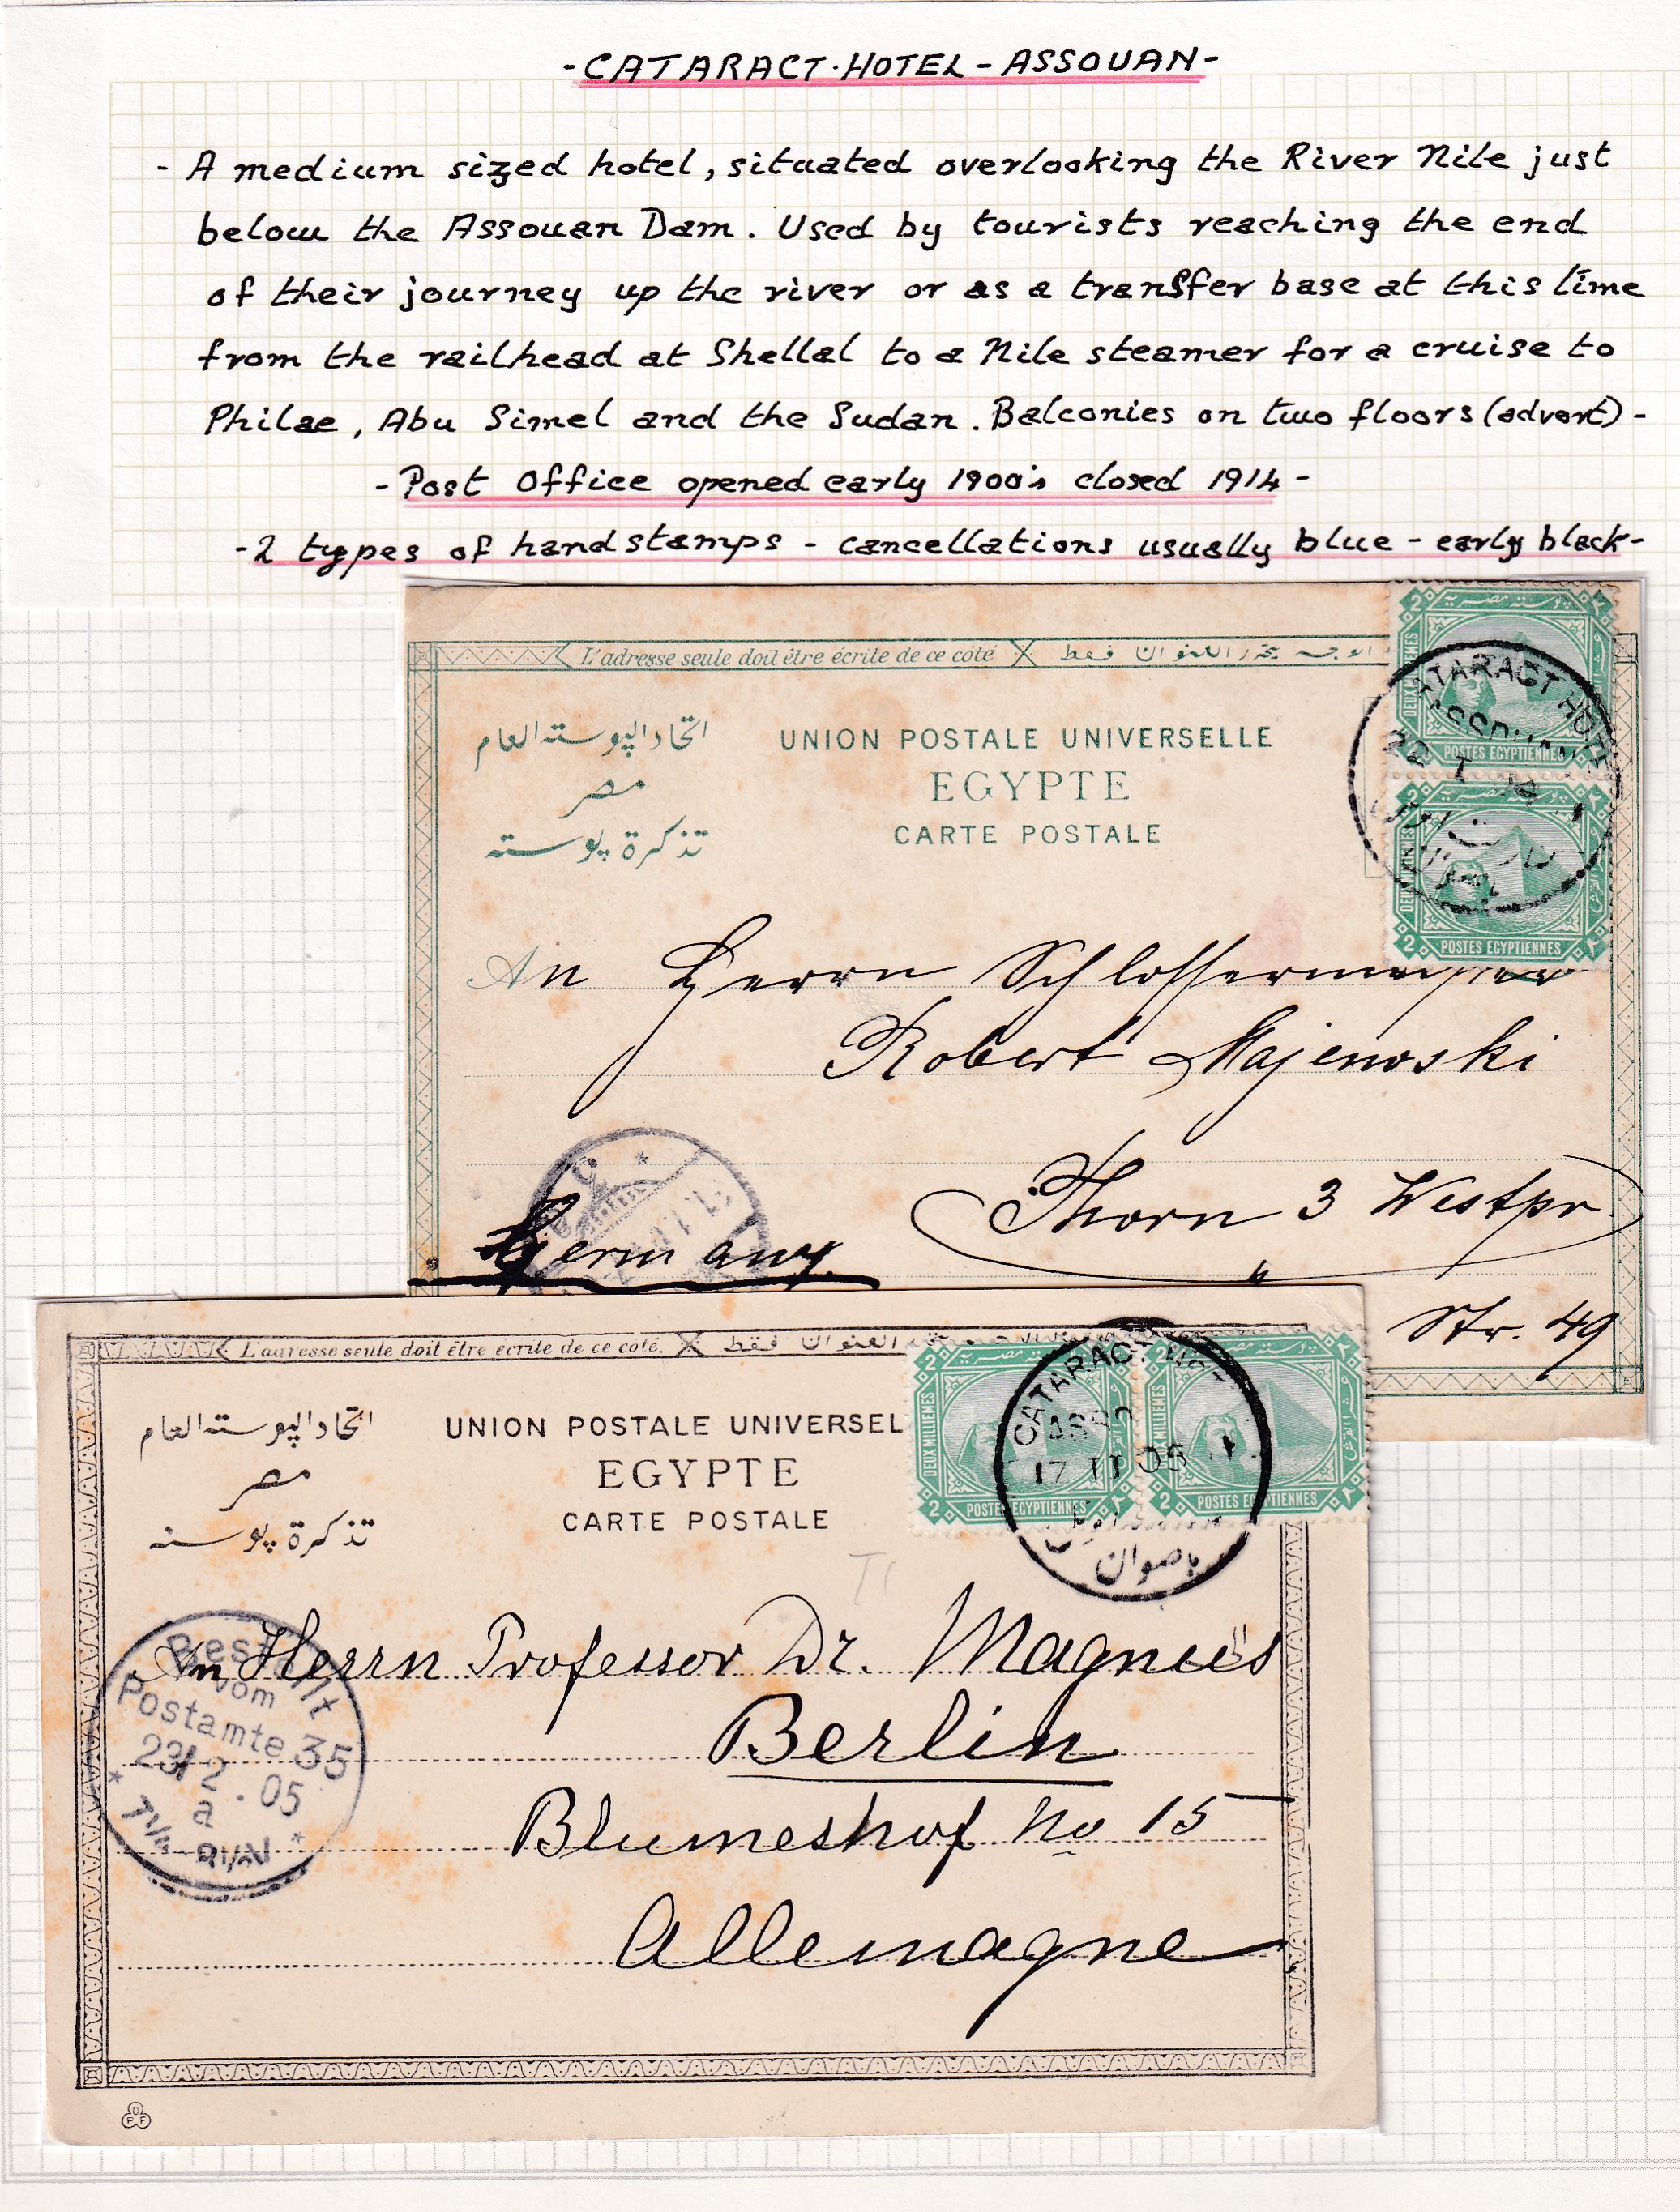 - CATARACT · HOTEL - ASSOUAN -
- A medium sized hotel, situated overlooking the River Nile just
below the Assouan Dam. Used by tourists reaching the end
of their journey up the river or as a transfer base at this time
from the railhead at Shellal to a Nile steamer for a cruise to
Philae, Abu Simel and the Sudan. Balconies on two floors (advert) -
- Post Office opened early 1900's closed 1914 -
- 2 types of handstamps - cancellations usually blue - early black -
L'adresse seule doit être écrite de ce côté
اتحاد البوسته العام
مصر
تذكرة بوسته
UNION POSTALE UNIVERSELLE
EGYPTE
CARTE POSTALE
2
DEUX MILLIEMES
POSTES EGYPTIENNES
CATARACT HOTEL
ASSOUAN
2
POSTES EGYPTIENNES
An Herrn
Robert Majewoski
Thorn 3 Westpr.
Germany.
Str. 49
L'adresse seule doit être écrite de ce coté.
العنوان فقط
اتحاد البوسته العام
مصر
تذكرة بوسته
UNION POSTALE UNIVERSEL
EGYPTE
CARTE POSTALE
DEUX MILLIEMES
2
POSTES EGYPTIENNES
2
POSTES EGYPTIENNES
CATARACT HOT
ASSO
17 II 05
باصوان
An Herrn Professor Dr. Magnus
Berlin
Blumeshof No 15
Allemagne
Bestellt
vom
Postamte 35
23/2.05
a
7 1/4 - 8 1/4 N
O
P F